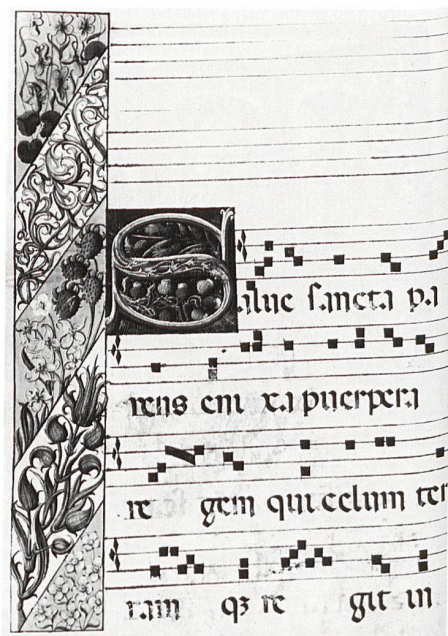 Salue sancta pa
rens enixa puerpera
regem qui celum ter
ram qꝫ regit in